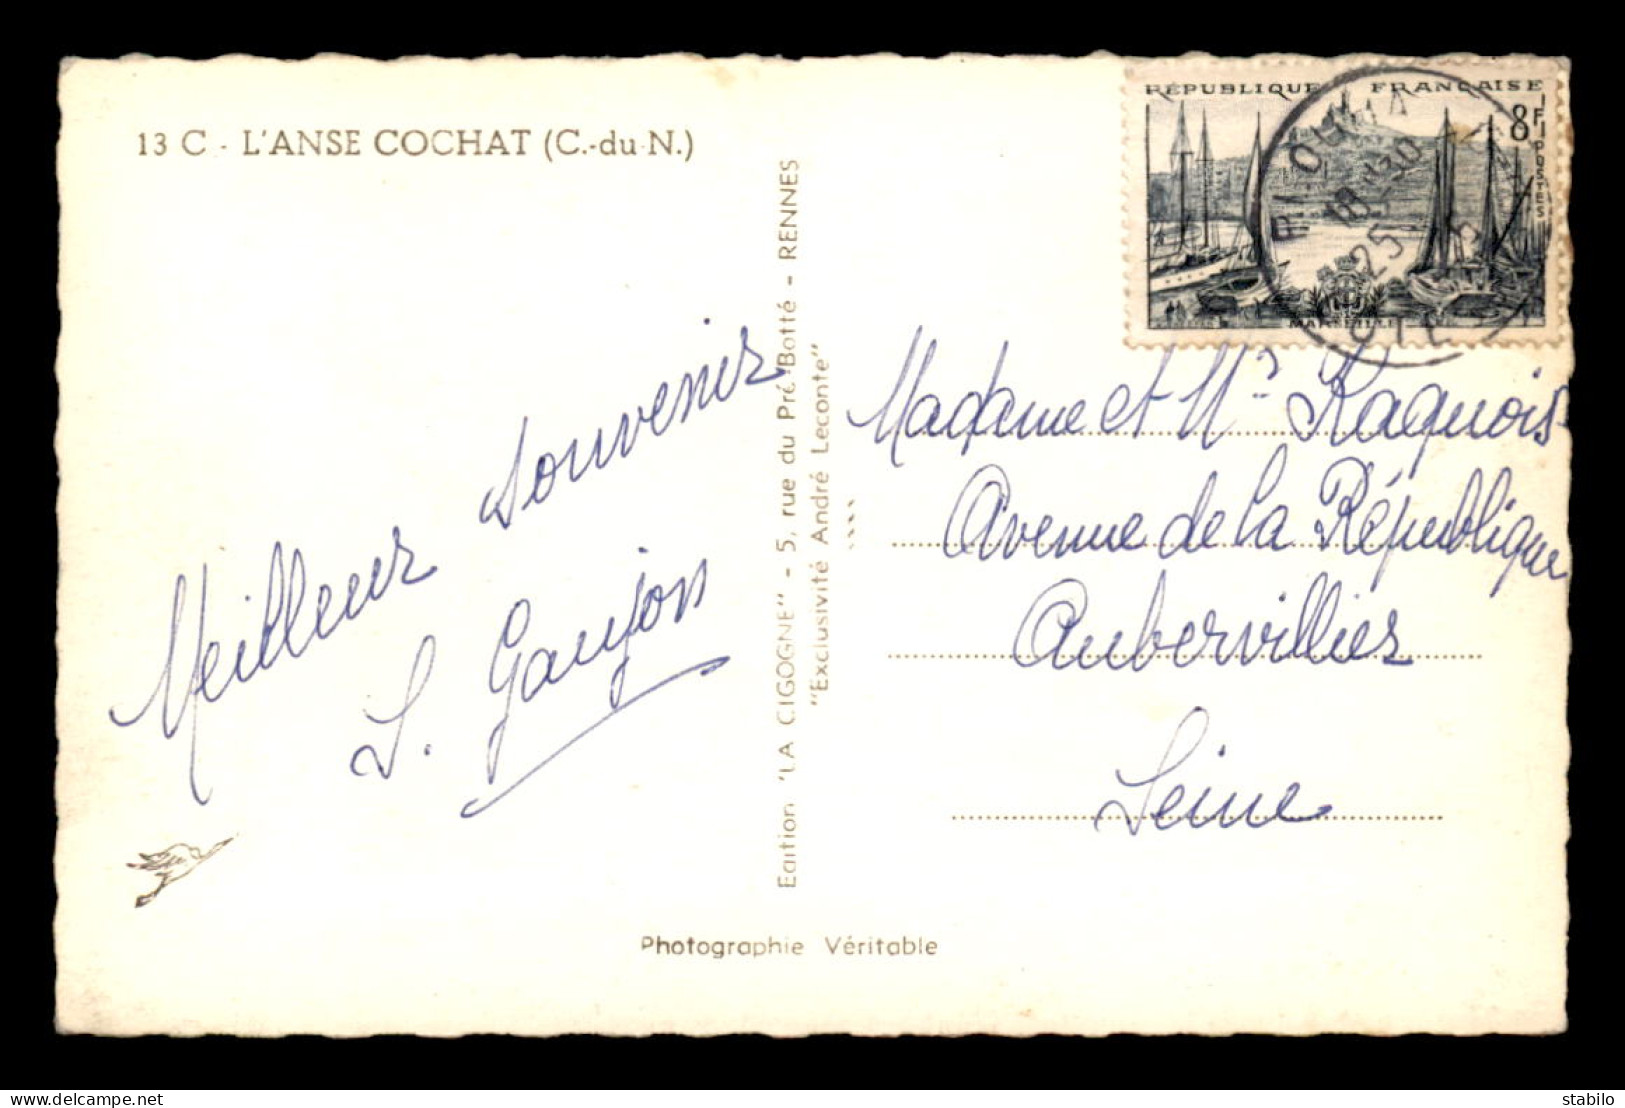 13 C - L'ANSE COCHAT (C.-du-N.)
RÉPUBLIQUE FRANÇAISE
8F
POSTES
MARSEILLE
18 H 30
25
Meilleur souvenir
S. Gaujon
Edition "LA CIGOGNE" - 5, rue du Pré-Botté - RENNES
"Exclusivité André Leconte"
Madame et Mr Raquois
Avenue de la République
Aubervilliers
Seine
Photographie Véritable
delcampe.net
stabilo